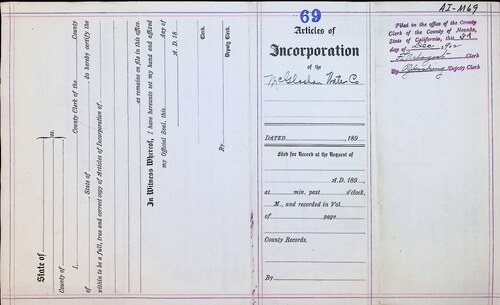 State of
ss.
County of
I, County Clerk of the County
of , State of , do hereby certify the
within to be a full, true and correct copy of Articles of Incorporation of
as remains on file in this office.
In Witness Whereof, I have hereunto set my hand and affixed
my Official Seal, this day of
A. D. 18
Clerk.
By Deputy Clerk.
69
Articles of
Incorporation
of the
McGlashan Water Co
DATED 189
filed for Record at the Request of
A. D. 189
at min. past o'clock,
M., and recorded in Vol.
of page
County Records.
By
AI-M69
Filed in the office of the County
Clerk of the County of Nevada,
State of California, this
day of Dec
Clerk
By Deputy Clerk